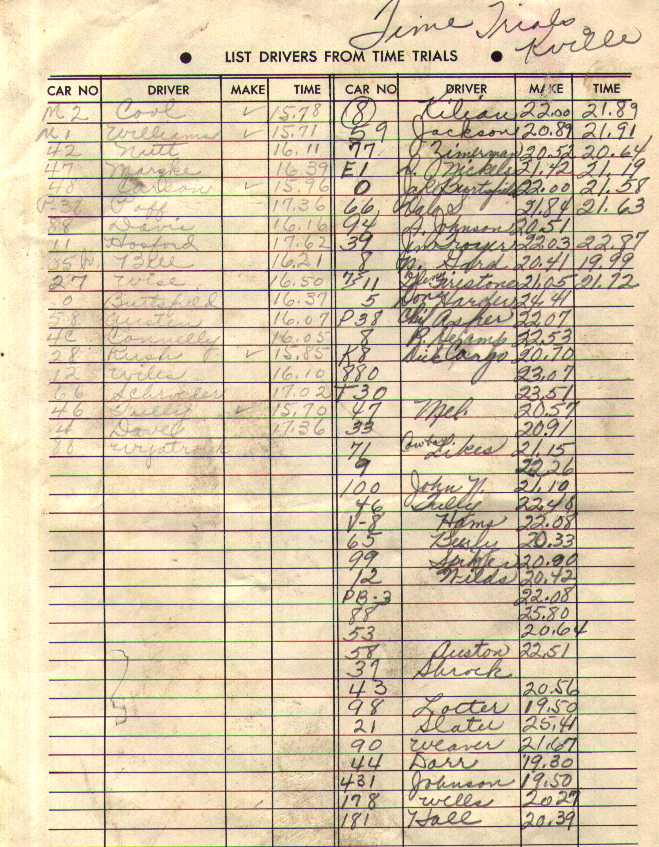 Time Trials
Kville
LIST DRIVERS FROM TIME TRIALS
CAR NO DRIVER MAKE TIME CAR NO DRIVER MAKE TIME
M2 Cool ✓ 15.78 8 Kilian 22.00 21.89
M1 Williams ✓ 15.71 59 Jackson 20.89 21.91
42 Nutt 16.11 77 J. Zimerman 20.52 20.64
47 16.39 E1 Nickels 21.42 21.19
40 Carlson ✓ 15.96 0 22.00 21.58
F-37 Poff 17.36 66 Dale S. 21.84 21.63
88 Davis 16.16 94 J. Johnson 20.51
11 Hosford 17.62 39 22.03 22.87
16.21 8 N. Gard 20.41 19.99
27 Wise 16.50 7-11 Firestone 21.05 21.72
0 Burtsfield 16.37 5 Don Harder 24.41
58 Austin 16.07 P38 Asher 22.07
4C Connelly 16.05 8 R. Decamp 22.53
28 Rush ✓ 15.85 K8 Dick Cargo 20.70
12 Wilds 16.10 880 23.07
66 Schrader 17.02 T30 23.51
46 Tully ✓ 15.70 47 Meh 20.57
4 Davee 17.36 33 20.91
80 71 Cowboy Likes 21.15
9 22.26
100 John N. 21.10
46 Tully 22.48
V-8 Hams 22.08
65 20.33
99 20.90
12 Wilds 20.42
PB-3 22.08
88 25.80
53 20.64
58 Auston 22.51
39 Shrock
43 20.56
98 Lotter 19.50
21 Slater 25.41
90 Weaver 21.67
44 Darr 19.30
431 Johnson 19.50
178 Wells 20.27
181 Hall 20.39